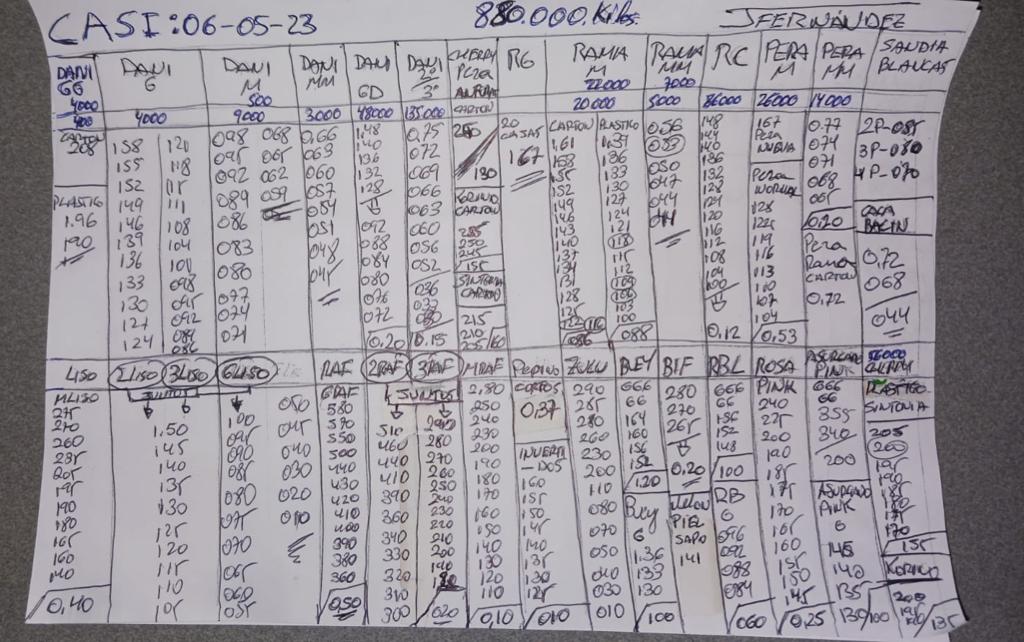 CASI: 06-05-23
880.000.Kilos.
JFERNÁNDEZ
DANI GG
4000
400
CARTON
208
PLASTIC
1.96
190
DANI G
4000
158 120
155 118
152 115
149 111
146 108
139 104
136 101
133 098
130 095
127 092
124 086
DANI M
500
9000
098 068
095 065
092 062
089 059
086
083
080
077
074
071
DANI MM
3000
0,66
063
060
057
054
051
048
045
DANI GD
48000
1.48
140
136
132
128
092
088
084
080
076
072
0,20
DANI 2º 3º
135000
0,75
072
069
066
063
060
056
052
036
0,15
CHERRY PERA
CARTON
130
CARTON
285
250
245
155
SINTONIA
CARTON
215
210
RG
20
CAJAS
1.67
RAMA M
22000
20000
CARTON PLASTICO
1,61 1.39
158 136
155 133
152 130
149 127
146 124
143 121
140 118
137 115
134 112
131 109
128 106
125 103
122 100
RAMA MM
7000
5000
056
053
050
047
044
041
088
RC
86000
148
144
140
136
132
128
124
120
116
112
108
104
100
0,12
PERA M
26000
167
PERA
NUEVA
PERA
NORMAL
128
122
119
116
113
110
107
104
0,53
PERA MM
14000
0.77
074
071
068
065
0,20
PERA
RAMA
CARTON
0,72
SANDIA
BLANCAS
2P-085
3P-080
4P-070
CAJA
0,72
068
044
LISO
MLISO
275
270
260
235
205
195
190
180
165
160
140
0,40
2LISO 3LISO
JUNTOS
1.50
145
140
135
130
125
120
115
110
105
6LISO
100 050
095 045
090 040
085 030
080 020
075 010
070
065
060
055
RAF
GRAF
580
570
550
500
440
430
420
400
390
380
360
0,50
2RAF 3RAF
JUNTOS
510 290
460 280
440 270
410 260
390 250
360 240
340 230
330 220
320 210
310 200
300 190
180
020
MRAF
2,80
250
240
230
200
190
180
170
160
150
140
130
120
110
0,10
Pepino
CORTOS
0,37
INVERTI
-DOS
160
155
150
145
140
135
130
125
010
ZUKU
290
285
280
260
230
200
110
080
070
050
040
030
010
BLEY
666
66
164
160
156
152
120
Bley
6
1.36
133
100
BIF
280
270
265
0.20
MELON
PIEL
SAPO
141
RBL
666
66
156
152
148
100
RB
6
096
092
088
084
060
ROSA
PINK
240
225
200
190
185
175
170
165
160
155
150
145
0,25
ASURCADO
PINK
666
66
355
340
200
ASURCADO
PINK
6
145
140
135
130/100
56000
CHERRY
PLASTICO
SINTONIA
205
200
195
190
185
180
175
170
135
KORINTO
200
195
190/135